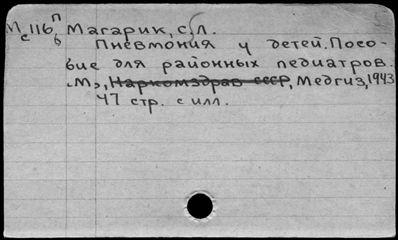 Мс116, п/в Магарик, С.Л.
Пневмония у детей. Посо-
бие для районных педиатров.
„М", Наркомздрав СССР, Медгиз, 1943
47 стр. с илл.